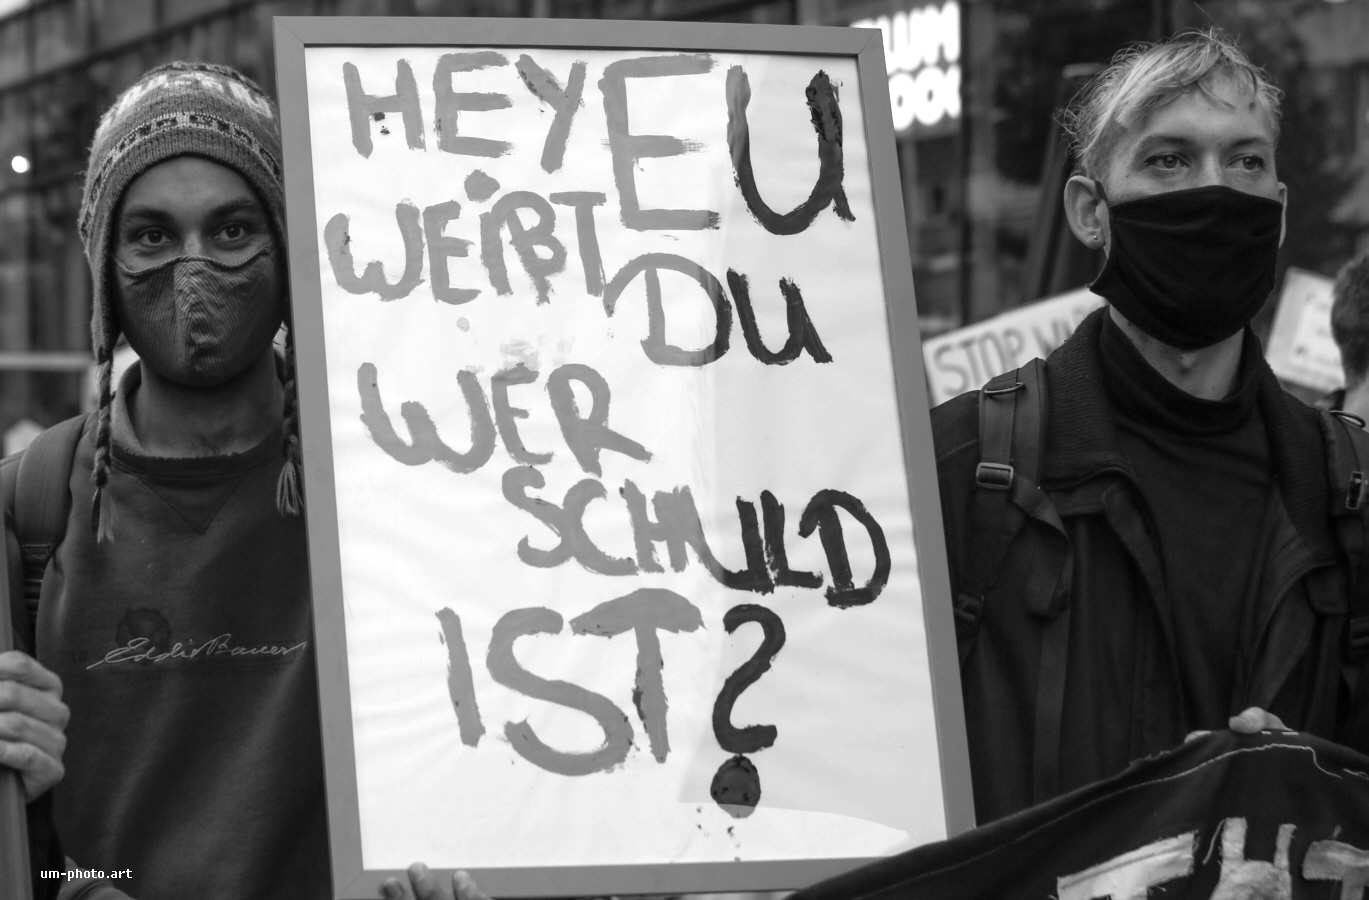 HEY EU
WEIßT DU
WER
SCHULD
IST?
STOP
Eddie Bauer
um-photo.art